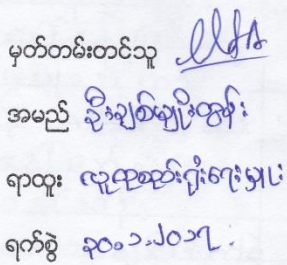 မှတ်တမ်းတင်သူ
အမည် ဦးချစ်မျိုးထွန်း
ရာထူး လူထုစည်းရုံးရေးမှူး
ရက်စွဲ ၃၀.၁.၂၀၁၇.